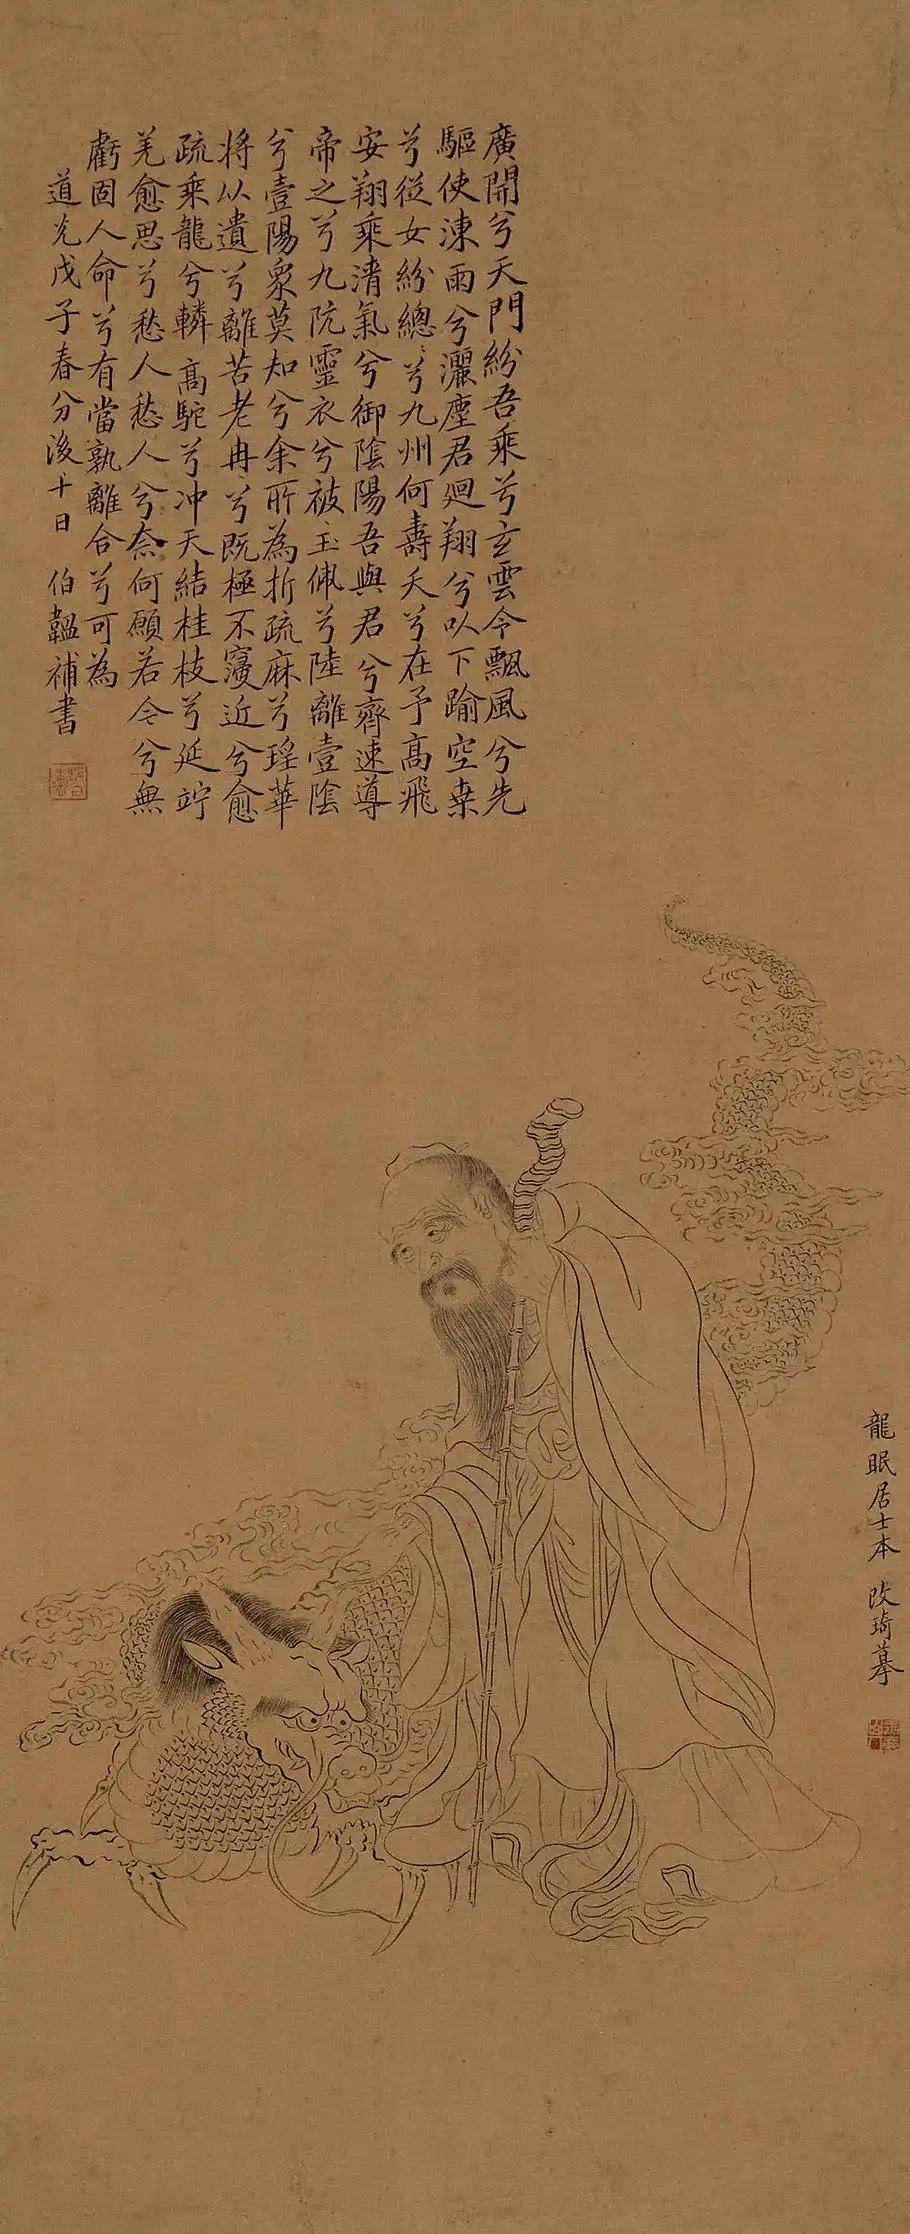 廣開兮天門紛吾乘兮玄雲令飄風兮先
驅使涷雨兮灑塵君迴翔兮㕥下踰空桒
兮從女紛總〻兮九州何壽夭兮在予高飛
安翔乘清氣兮御陰陽吾與君兮齊速導
帝之兮九阬靈衣兮被〻玉佩兮陸離壹陰
兮壹陽衆莫知兮余所為折疏麻兮瑤華
將以遺兮離苦老冉〻兮既極不寖近兮愈
疏乘龍兮轔〻高駝兮冲天結桂枝兮延竚
羌愈思兮愁人愁人兮奈何願若今兮無
虧固人命兮有當孰離合兮可為
道光戊子春分後十日 伯韞補書
龍眠居士本 改琦摹